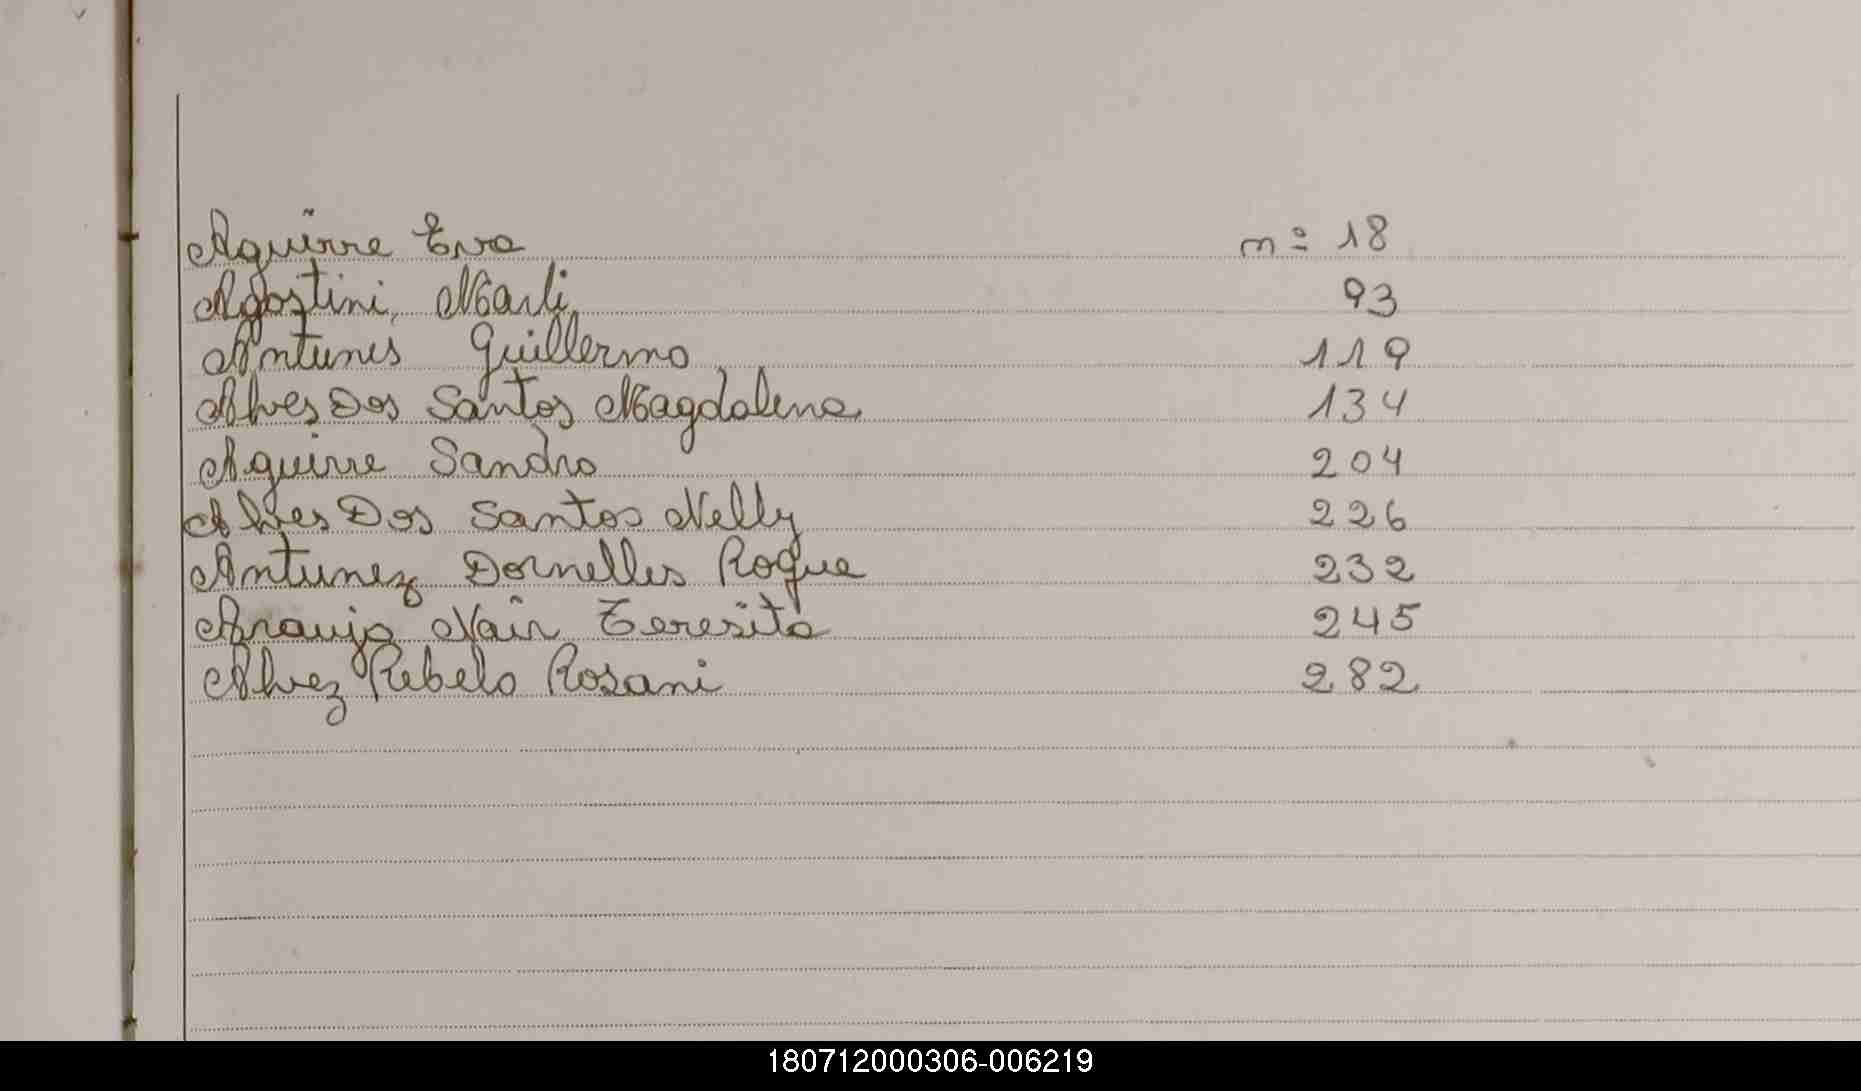 Aguirre Eva nº 18
Agostini, Marli 93
Antunes Guillermo 119
Alves Dos Santos Magdalena 134
Aguirre Sandro 204
Alves Dos Santos Nelly 226
Antunez Dornelles Roque 232
Araujo Nair Teresita 245
Alvez Rebelo Rosani 282
180712000306-006219